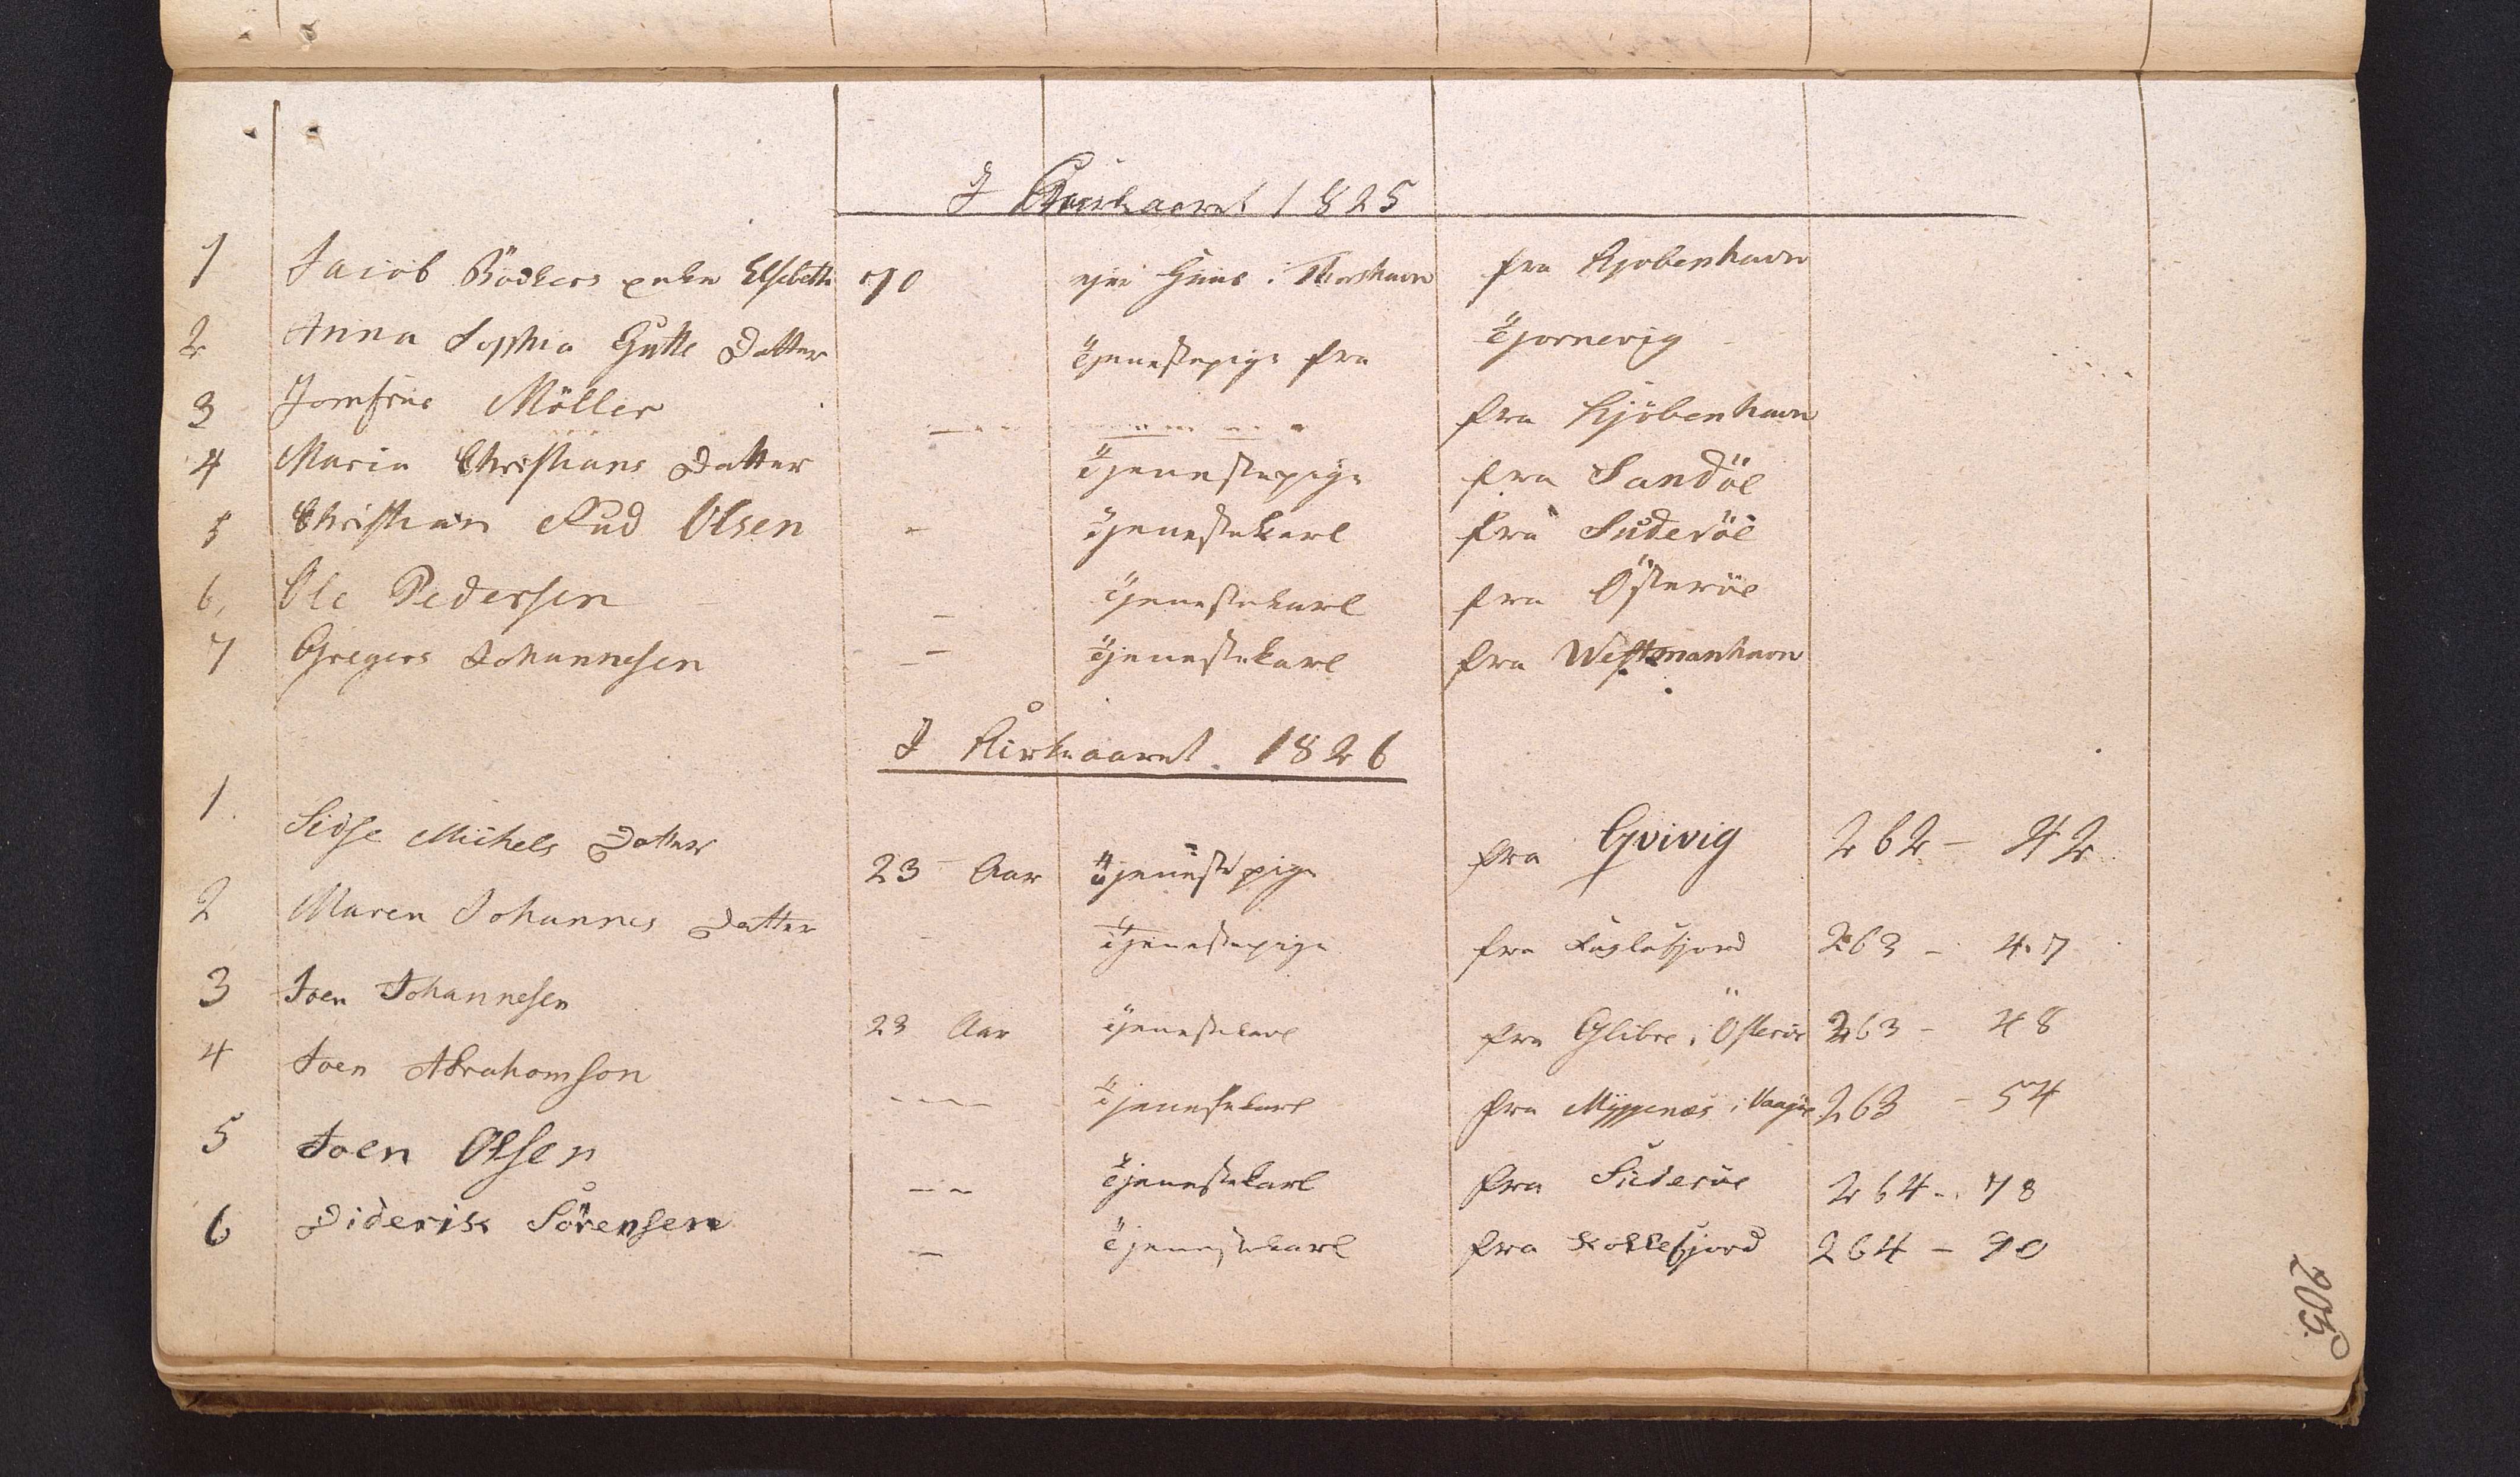 I Kirkaaret 1825
1 Jacob Bödkers enke Elsebeth 70 ejer Huus i Thorshavn fra Kjobenhavn
2 Anna Sophia Gutte Datter Tjenestepige fra Tjornevig
3 Jomfrue Möller fra Kjöbenhavn
4 Maria Christians Datter Tjenestepige fra Sandöe
5 Christian Rud Olsen - Tjenestekarl fra Suderöe
6. Ole Pedersen - Tjenestekarl fra Österöe
7 Gregers Johannesen - Tjenestekarl fra Westmanhavn
I Kirkeaaret. 1826
1. Sidse Michels Datter 23 Aar Tjenestepige fra Qvivig 262 - 42
2 Maren Johannes Datter - Tjenestepige fra Fuglefjord 263 - 47
3 Joen Johannesen 23 Aar Tjenestekarl fra Glibre i Österöe 263 - 48
4 Joen Abrahamson - - - Tjenestekarl fra Myggenæs i Vaagöe 263 - 54
5 Joen Olsen - - Tjenestekarl fra Suderöe 264 - 78
6 Diderik Sörensen - Tjenestekarl fra Kollefjord 264 - 90
205.